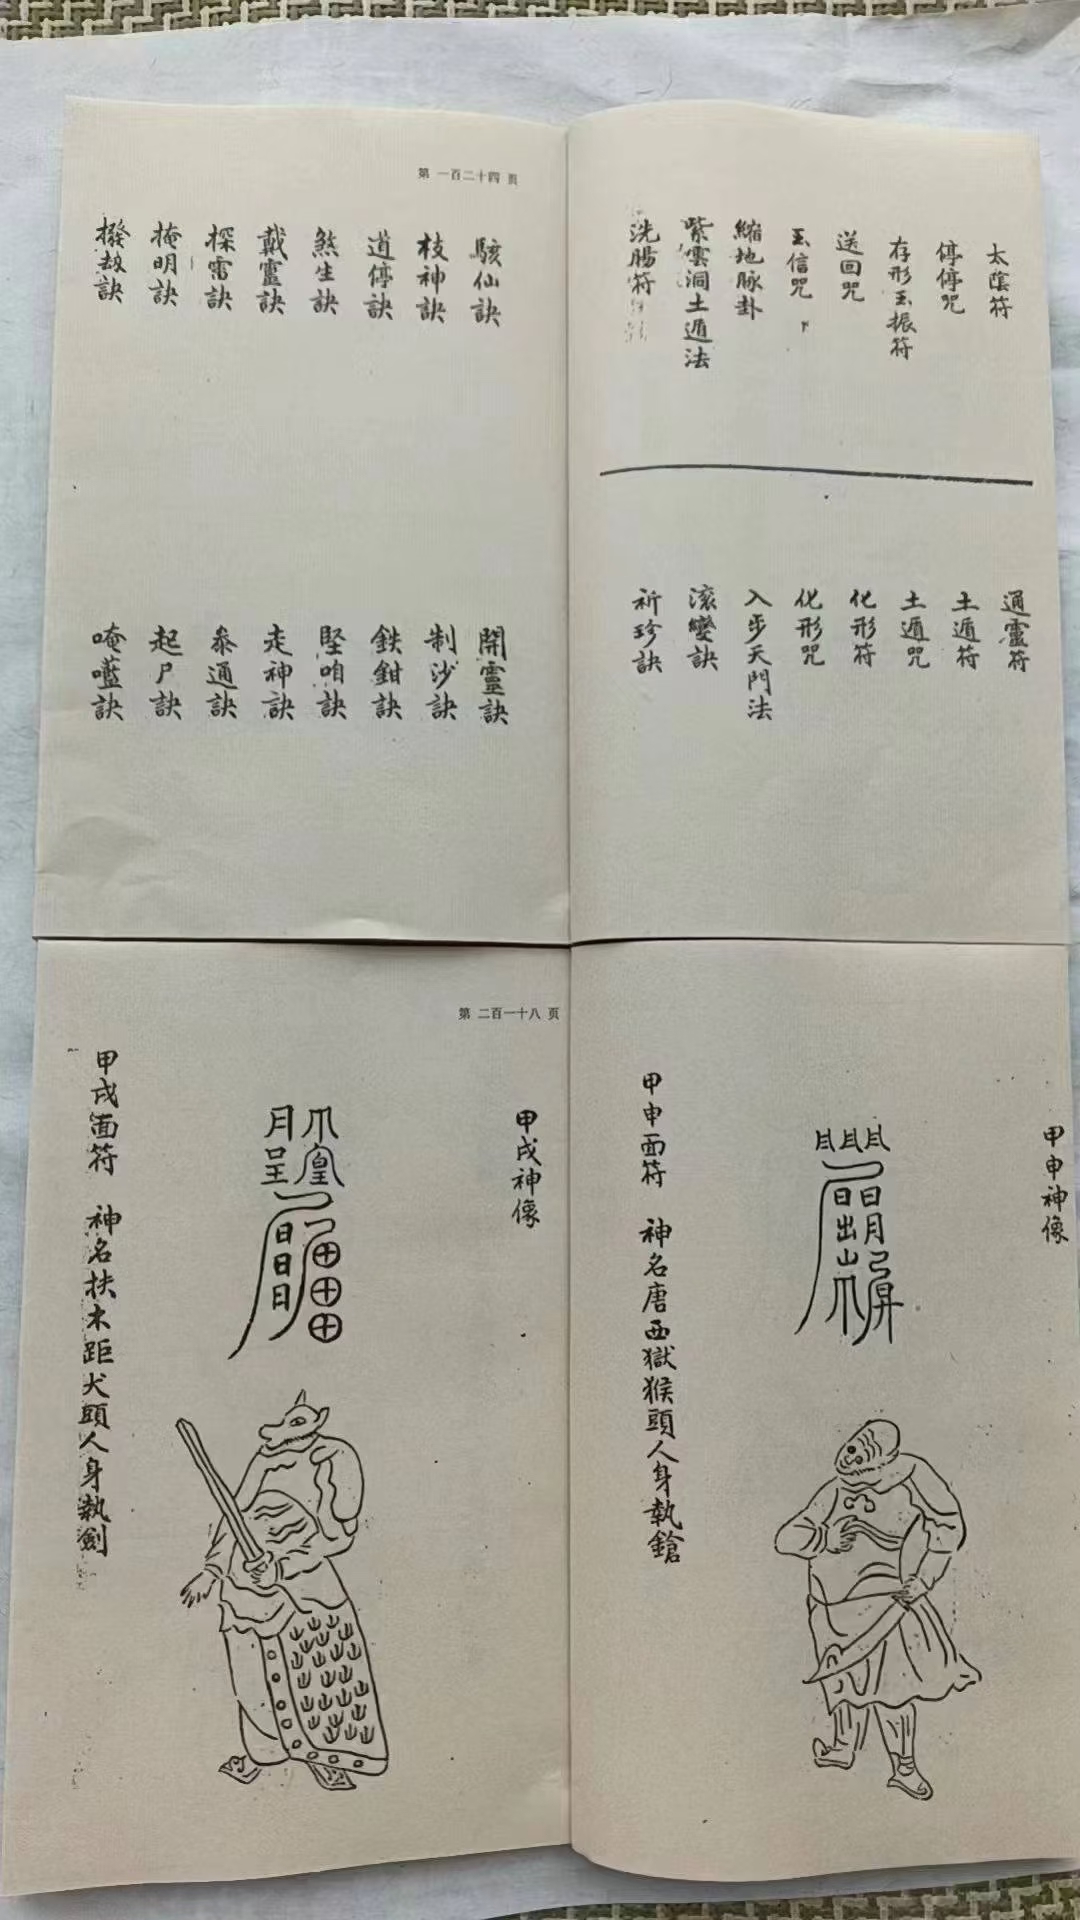 太陰符
停停咒
存形玉振符
送回咒
玉信咒
縮地脉卦
紫雲洞土遁法
洗腸符
通靈符
土遁符
土遁咒
化形符
化形咒
入步天門法
滚變訣
祈珍訣
第 一百二十四 页
駭仙訣
枝神訣
道停訣
煞生訣
戴靈訣
探雷訣
掩明訣
撥劫訣
開靈訣
制沙訣
鉄鉗訣
堅咱訣
走神訣
泰通訣
起尸訣
唵嚂訣
甲申神像
甲申面符 神名唐西獄猴頭人身執鎗
第 二百一十八 页
甲戌神像
甲戌面符 神名扶木距犬頭人身執劍